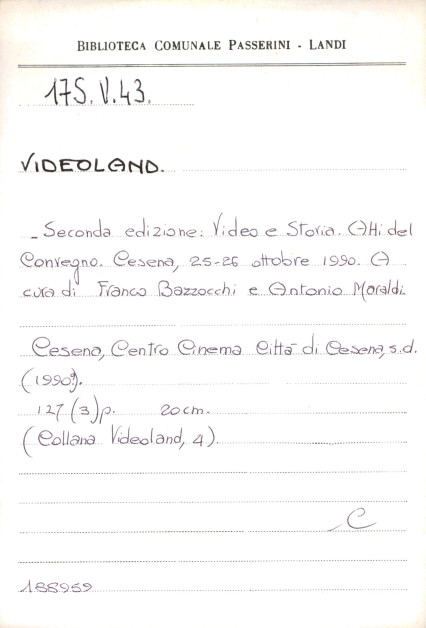 BIBLIOTECA COMUNALE PASSERINI - LANDI
17S. V. 43.
VIDEOLAND.
- Seconda edizione: Video e Storia. Atti del
Convegno. Cesena, 25-26 ottobre 1990. A
cura di Franco Bazzocchi e Antonio Maraldi.
Cesena, Centro Cinema Città di Cesena, s.d.
(1990?).
127 (3) p. 20 cm.
(Collana Videoland, 4).
C
188959